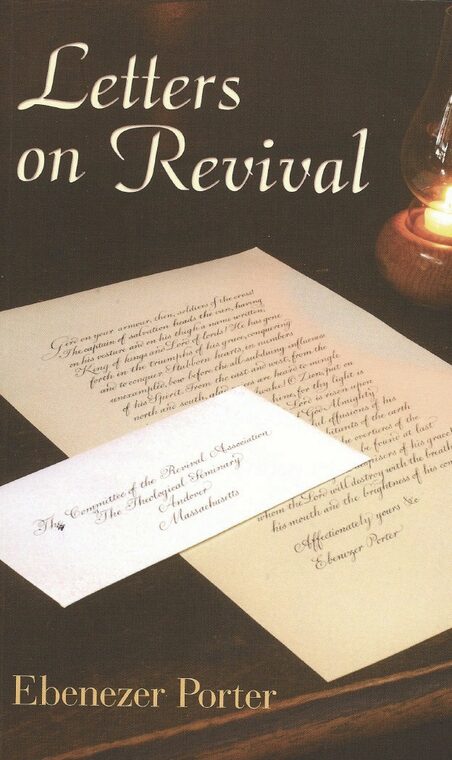 Letters
on Revival
Gird on your armour, then, soldiers of the cross!
The captain of salvation heads the van, having
on his vesture and on his thigh a name written,
King of kings and Lord of lords! He has gone
forth in the triumphs of his grace, conquering
and to conquer. Stubborn hearts, in numbers
unexampled, bow before the all-subduing influence
of his Spirit. From the east and west, from the
north and south,
O Zion, put on
for thy light is
Lord is risen upon
God Almighty
effusions of his
of the earth
overtures of the
be found at last
of his grace
whom the Lord will destroy with the breath
his mouth and the brightness of his
Affectionately yours &c
Ebenezer Porter
The Committee of the Revival Association
The Theological Seminary
Andover
Massachusetts
Ebenezer Porter